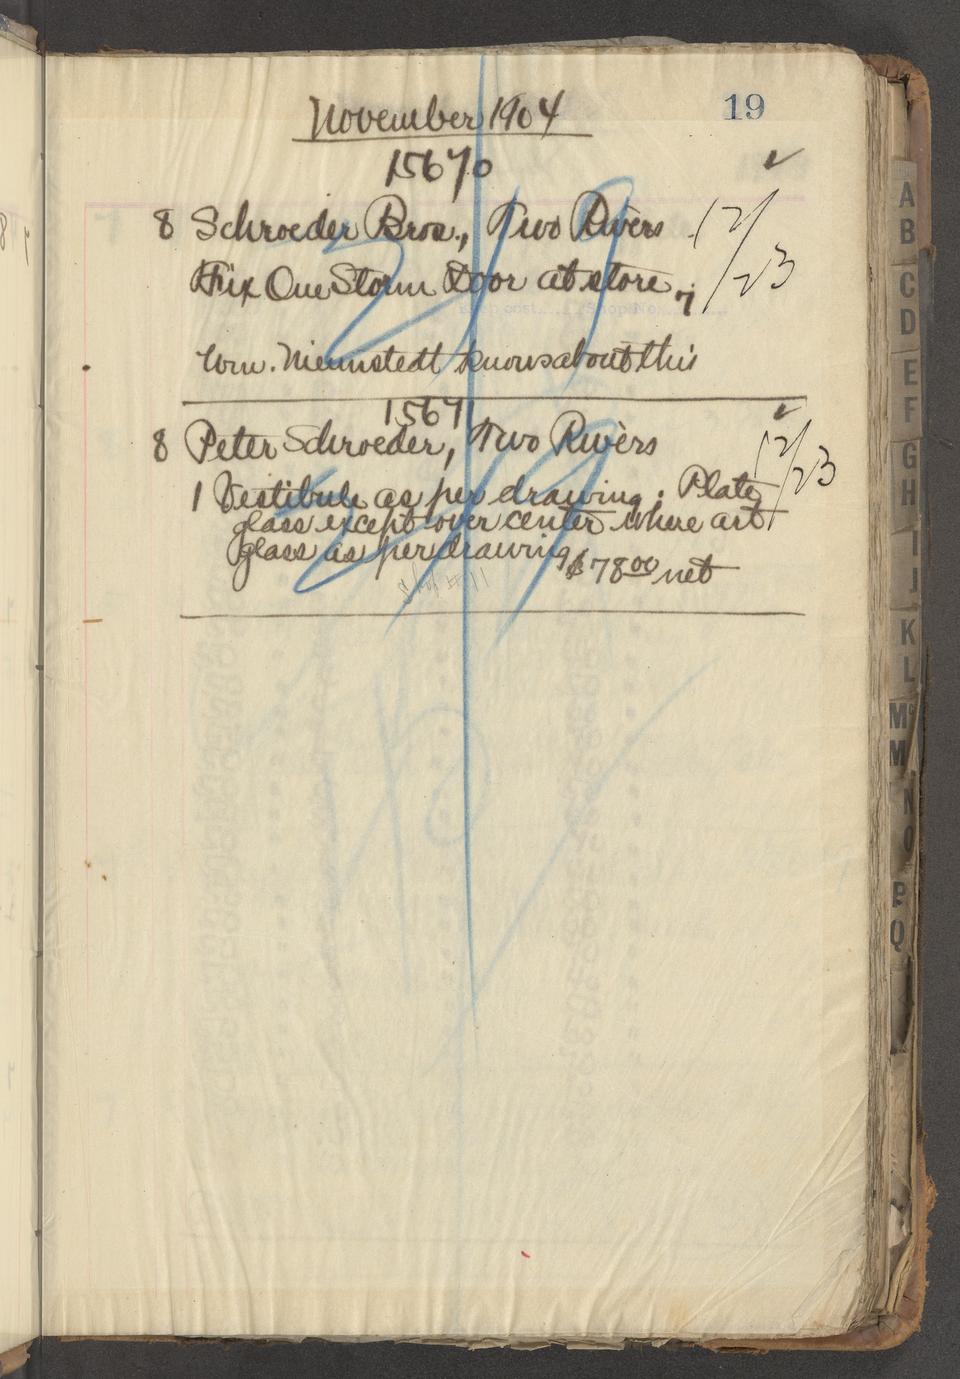 19
November 1904
15670 ✓
8 Schroeder Bros., Two Rivers 12/23
Fix One Storm Door at store,
Wm. Niemstedt knows about this
15671 ✓
8 Peter Schroeder, Two Rivers 12/23
1 Vestibule as per drawing. Plate
glass except over center where art
glass as per drawing
$78.00 net
A
B
C
D
E
F
G
H
I
J
K
L
Mc
M
N
O
P
Q